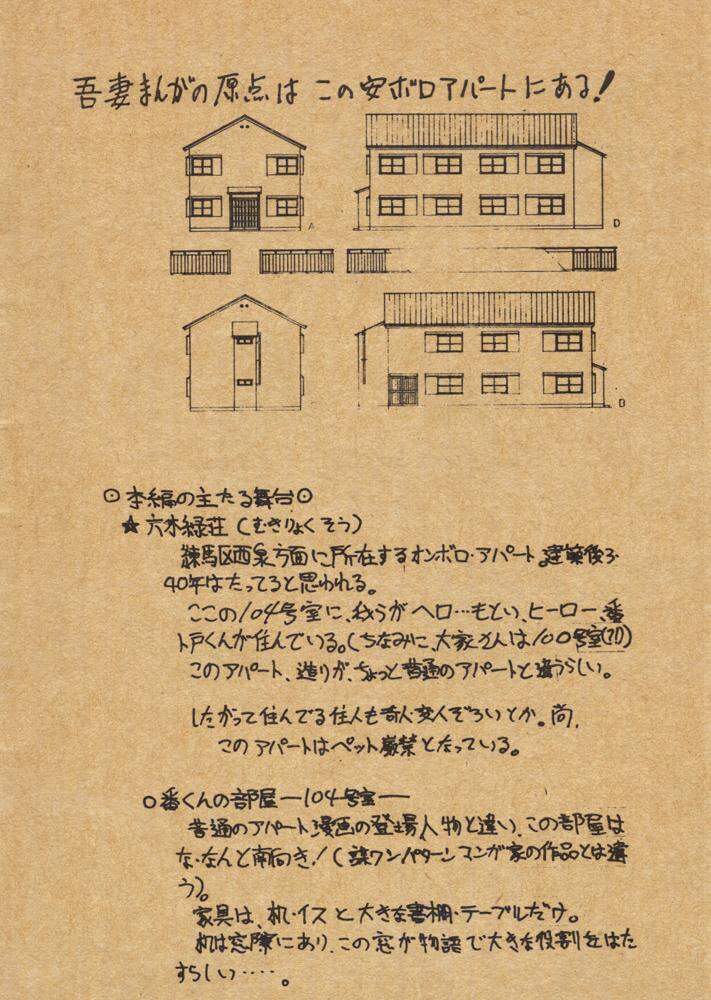 吾妻まんがの原点は この安ボロアパートにある!
A
D
B
⊙本編の主たる舞台⊙
★六本緑荘(むきりょくそう)
練馬区西泉方面に所在するオンボロ・アパート。建築後3-
40年はたってると思われる。
ここの104号室に、我らがヘロ…もとい、ヒーロー、番
戸くんが住んでいる。(ちなみに、大家さんは100号室(?!))
このアパート、造りが、ちょっと普通のアパートと違うらしい。
したがって住んでる住人も奇人変人ぞろいとか。尚、
このアパートはペット厳禁となっている。
○番くんの部屋―104号室―
普通のアパート漫画の登場人物と違い、この部屋は
な・なんと南向き!(某ワンパターンマンガ家の作品とは違
う)。
家具は、机・イスと大きな書棚・テーブルだけ。
机は窓際にあり、この窓が物語で大きな役割をはた
すらしい……。